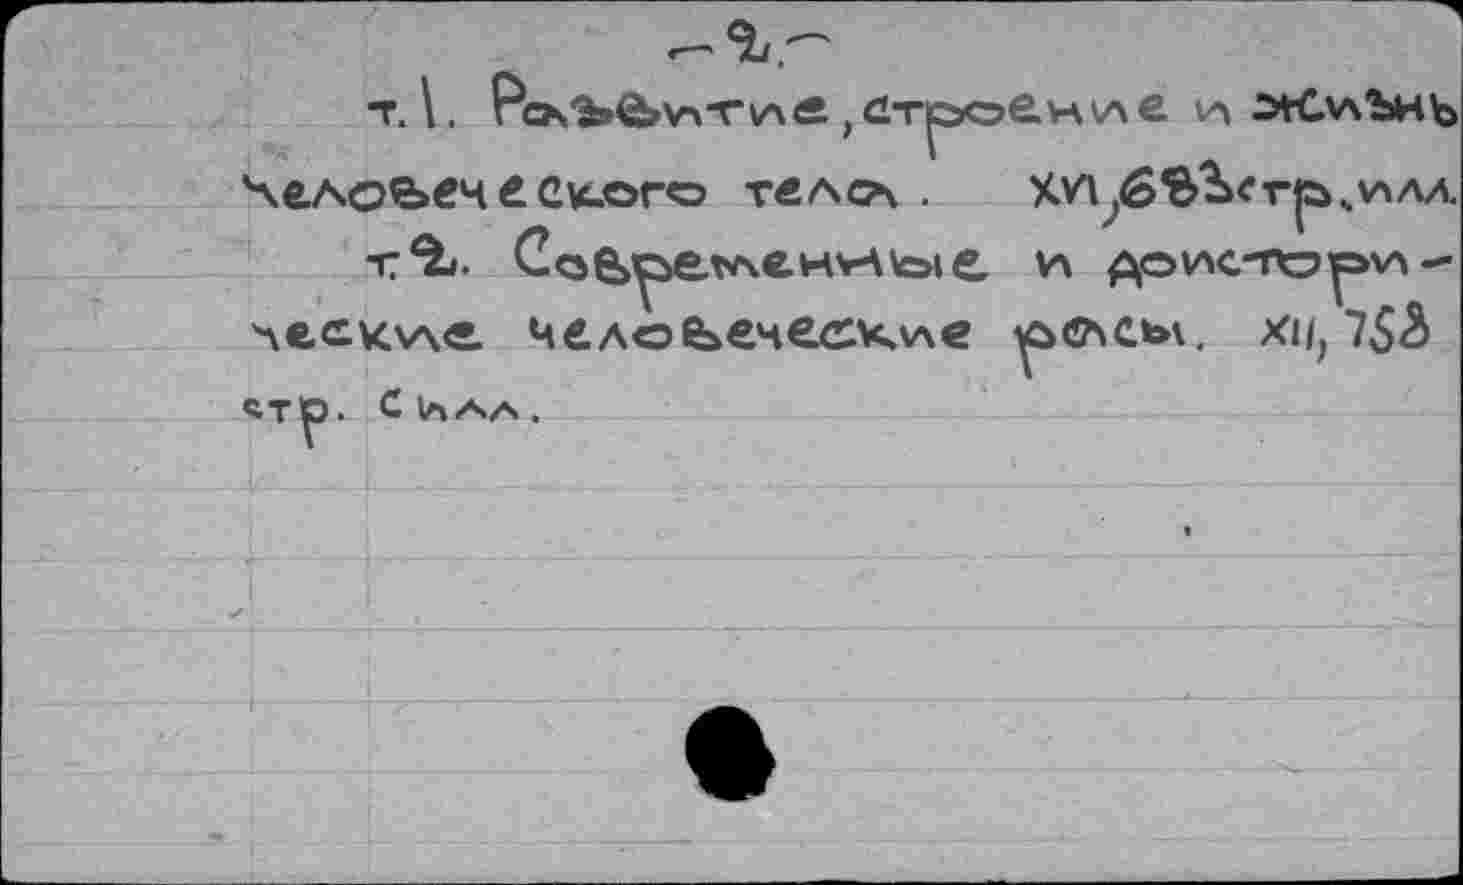 -2.-
т.1. Развитие, строение и жизнь
человеческого тела. XVI, 683 стр., илл.
т.2. Современные и доистори-
ческие человеческие расы. XII, 753
стр. с илл.